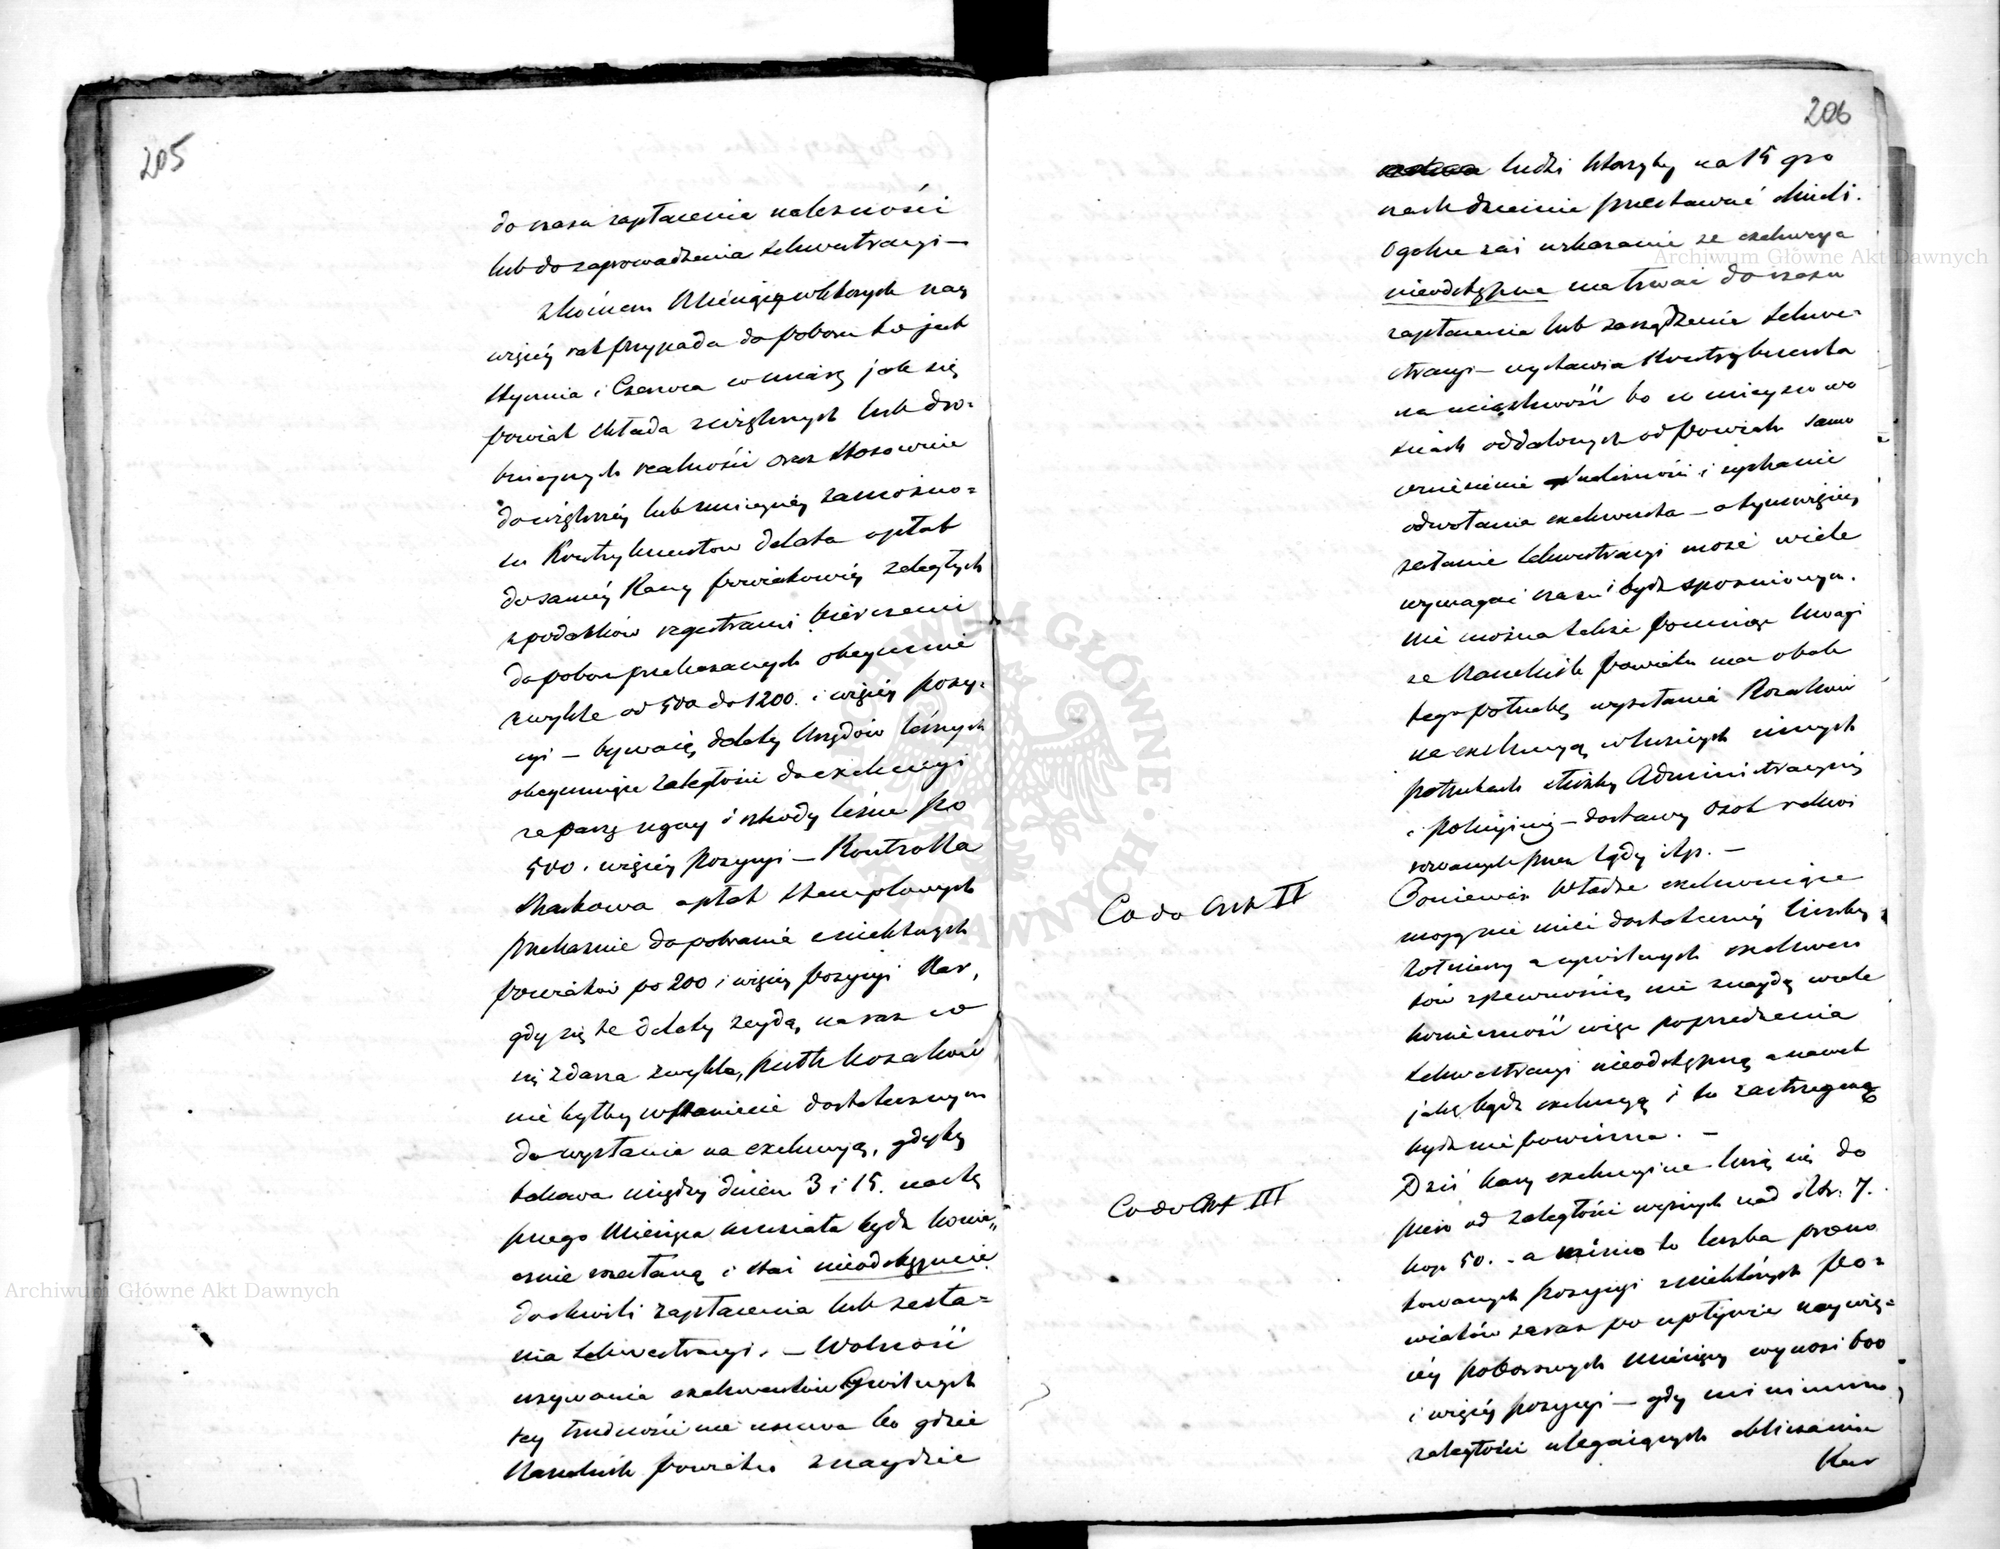 205
do czasu zapłacenia należności
lub do zaprowadzenia sekwestracyi —
z końcem Miesięcy w których nay
więcéy rat przypada do poboru to jest
Stycznia i Czerwca w miarę jak się
powiat składa z większych lub dro-
bnieyszych realności oraz stosownie
do większéy lub mnieyszéy zamożno=
ści Kontrybuentow delata opłat
do saméy Kassy powiatowéy zaległych
z podatków regestrami bierczemi
do poboru przekazanych obeymuie
zwykle od 500 do 1200. i więcéy pozy-
cyi — bywaią delaty Urzędów leśnych
obeymuiące zaległości do exekucyi
za paszę ugay i szkody leśne po
500. i więcéy pozycyi — Kontrolla
Skarbowa opłat stemplowych
przekaznie do pobrania w niektórych
powiatów po 200 i więcéy pozycyi Kar,
gdy się te delaty zeydą, na raz co
się zdarza zwykle, pułk kozaków
nie byłby w stanie dostatecznym
do wysłania na exekucyą, gdyby
takowa między dniem 3 i 15. nastę
pnego Miesiąca musiała bydź konie„
cznie zesłaną i stać nieodstępnie
do chwili zapłacenia lub zesła=
nia sekwestracyi. — Wolność
używania exekwentów Cywilnych
tey trudności nie usuwa bo gdzie
Naczelnik powiatu znaydzie
206
ludzi którzyby na 15 gro
szach dziennie przestawać chcieli.
Ogólne zaś wskazanie że exekucya
nieodstępna ma trwać do czasu
zapłacenia lub zarządzenia sekwe-
stracyi — wystawia Kontrybuenta
na uciążliwość bo w mieyscowo
ściach oddalonych od powiatu samo
wniesienie należności i zyskanie
odwołania exekwenta — a tym więcéy
zesłanie sekwestracyi może wiele
wymagać czasu i bydź spóźnionym.
Nie można także pominąć Uwagi
że Naczelnik powiatu ma obok
tego potrzebę wysłania Kozaków
na exekucyą w licznych innych
potrzebach służby Administracyjnéy
i policyjnéy — dostawy osób rekwi
rowanych przez Sądy itp. —
Co do Art II
Ponieważ Władze exekwuiące
mogą nie mieć dostatecznéy liczby
żołnierzy a cywilnych exekwen
tów z pewnością nie znaydą wiele
konieczność więc poprzedzenia
sekwestracyi nieodstępną a nawet
jakąbądź exekucyą i tu zastrzeżoną
bydź nie powinna. —
Co do Art III
Dziś kary exekucyine liczą się do
piero od zaległości wyższych nad Rbr. 7.
kop 50. — a mimo to liczba prono
towanych pozycyi z niektórych po=
wiatów zaraz po upływie naywię=
céy poborowych Miesięcy wynosi 600
i więcéy pozycyi — gdy minimum
zaległości ulegaiących obliczaniu
Kar